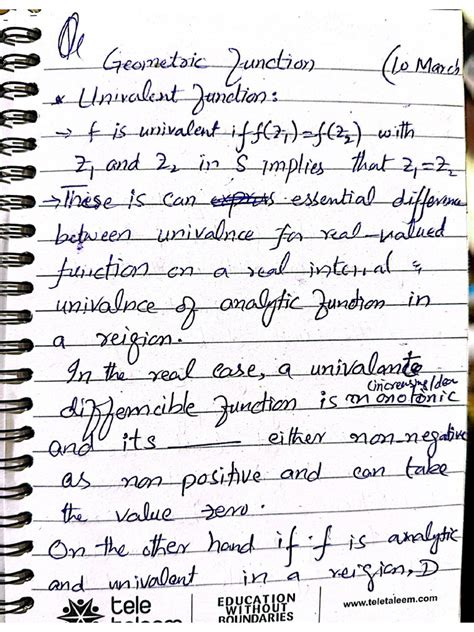 Geometric Function (10 March
* Univalent Function:
→ f is univalent if f(z₁)=f(z₂) with
z₁ and z₂ in S implies that z₁=z₂
→ These is can essential difference
between univalnce for real-valued
function on a real interval &
univalnce of analytic Function in
a reigion.
In the real case, a univalant
(increasing/dec
differncible Function is monotonic
and its ____ either non-negative
as non positive and can take
the value zero.
On the other hand if f is analytic
and univalent in a reigion, D
tele
EDUCATION
WITHOUT
BOUNDARIES
www.teletaleem.com